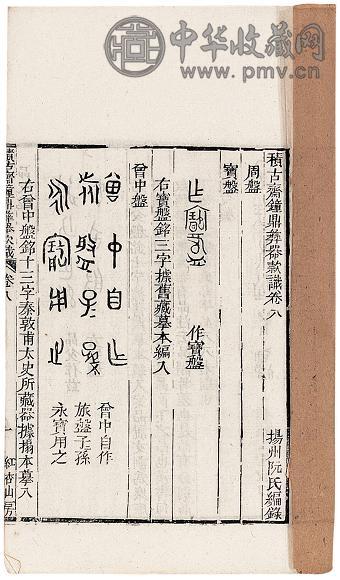 中华收藏网
www.pmv.cn
積古齋鐘鼎彝器款識卷八
揚州阮氏編錄
周盤
寶盤
作寶盤
右寶盤銘三字據舊藏摹本編入
曾中盤
曾中自作
旅盤子孫
永寶用之
右曾中盤銘十二字秦敦甫太史所藏器據搨本摹入
積古齋鐘鼎彝器款識 卷八
一